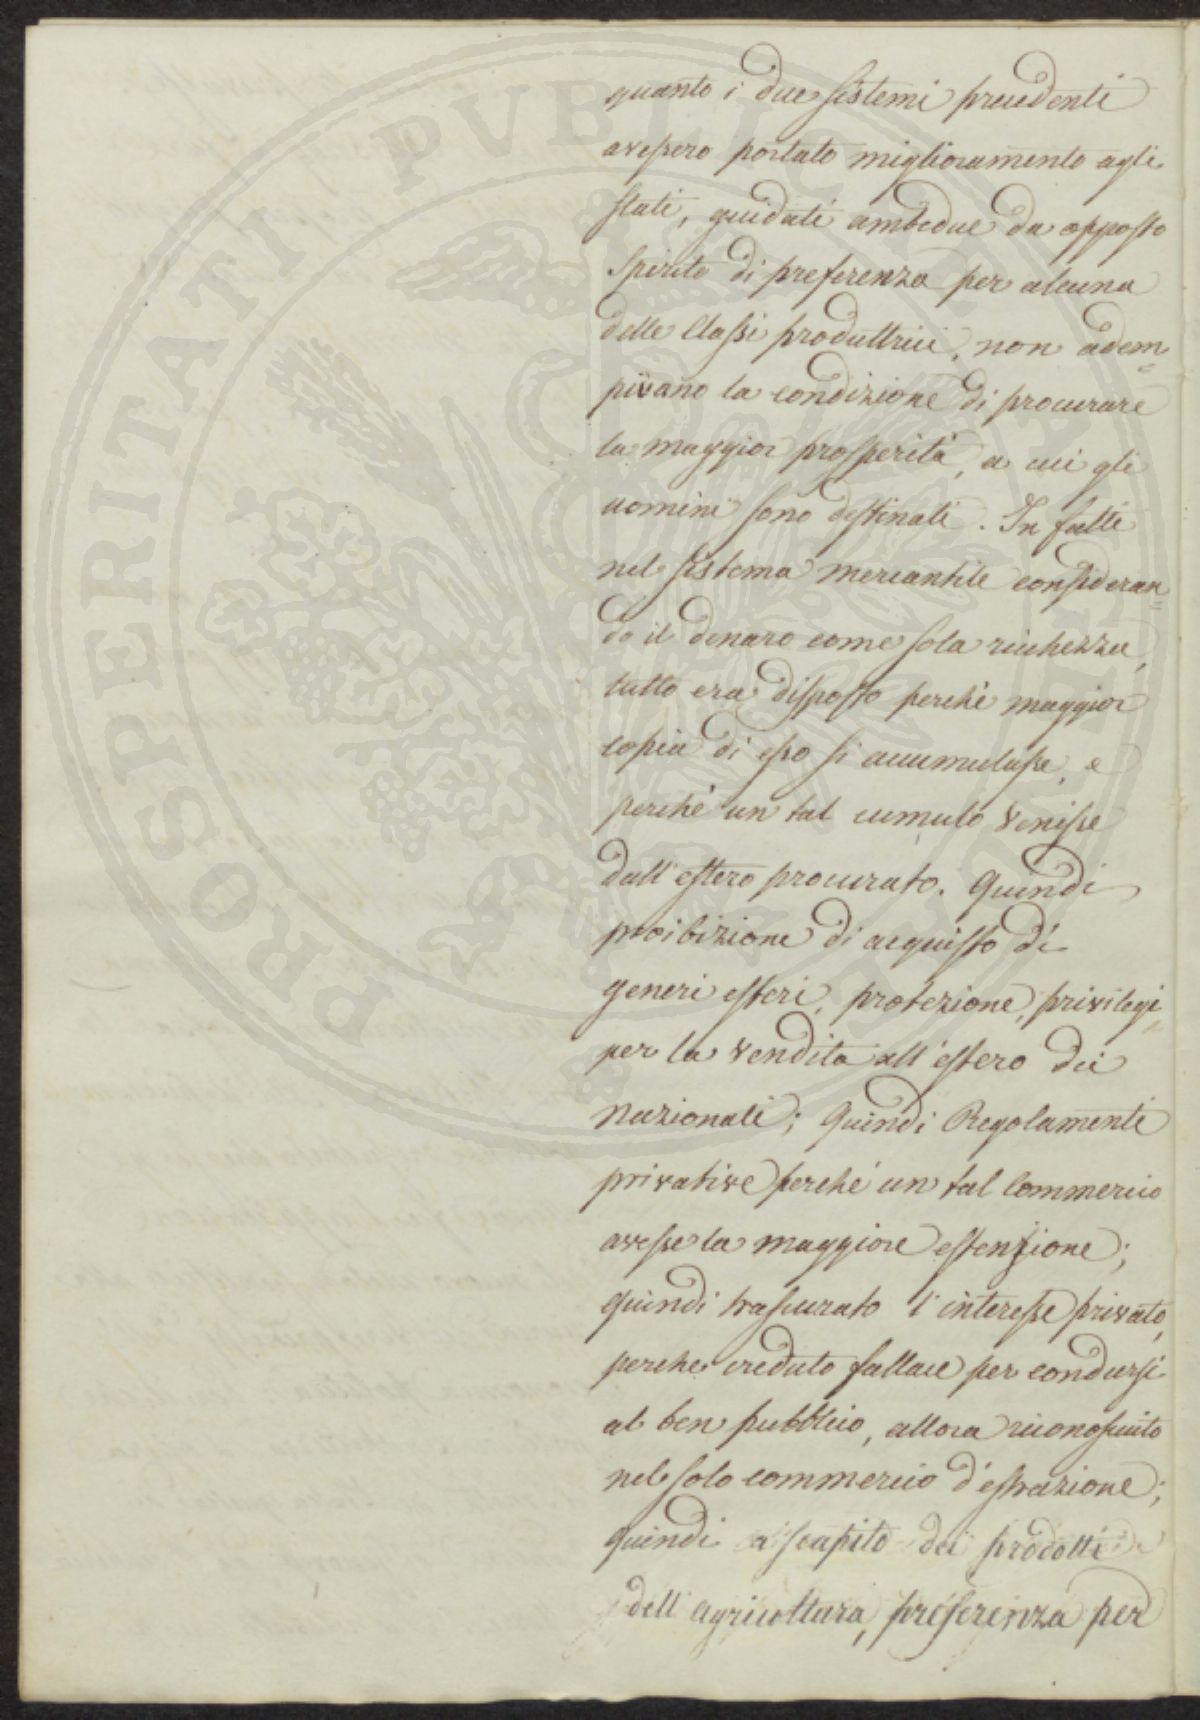 quanto i due sistemi precedenti
avessero portato miglioramento agli
stati, guidati ambedue da opposto
spirito di preferenza per alcuna
delle Classi produttrici, non adem=
pivano la condizione di procurare
la maggior prosperità, a cui gli
uomini sono destinati. In fatti
nel sistema mercantile consideran=
do il denaro come sola ricchezza,
tutto era disposto perchè maggior
copia di esso si accumulasse, e
perchè un tal cumulo venisse
dall'estero procurato. Quindi
proibizione di acquisto di
generi esteri, protezione, privilegi
per la vendita all'estero dei
nazionali; Quindi Regolamenti
privative perchè un tal Commercio
avesse la maggiore estensione;
quindi trascurato l'interesse privato,
perchè creduto fallace per condursi
al ben pubblico, allora riconosciuto
nel solo commercio d'estrazione;
quindi a scapito dei prodotti
dell'agricoltura, preferenza per
PROSPERITATI PVBLICAE